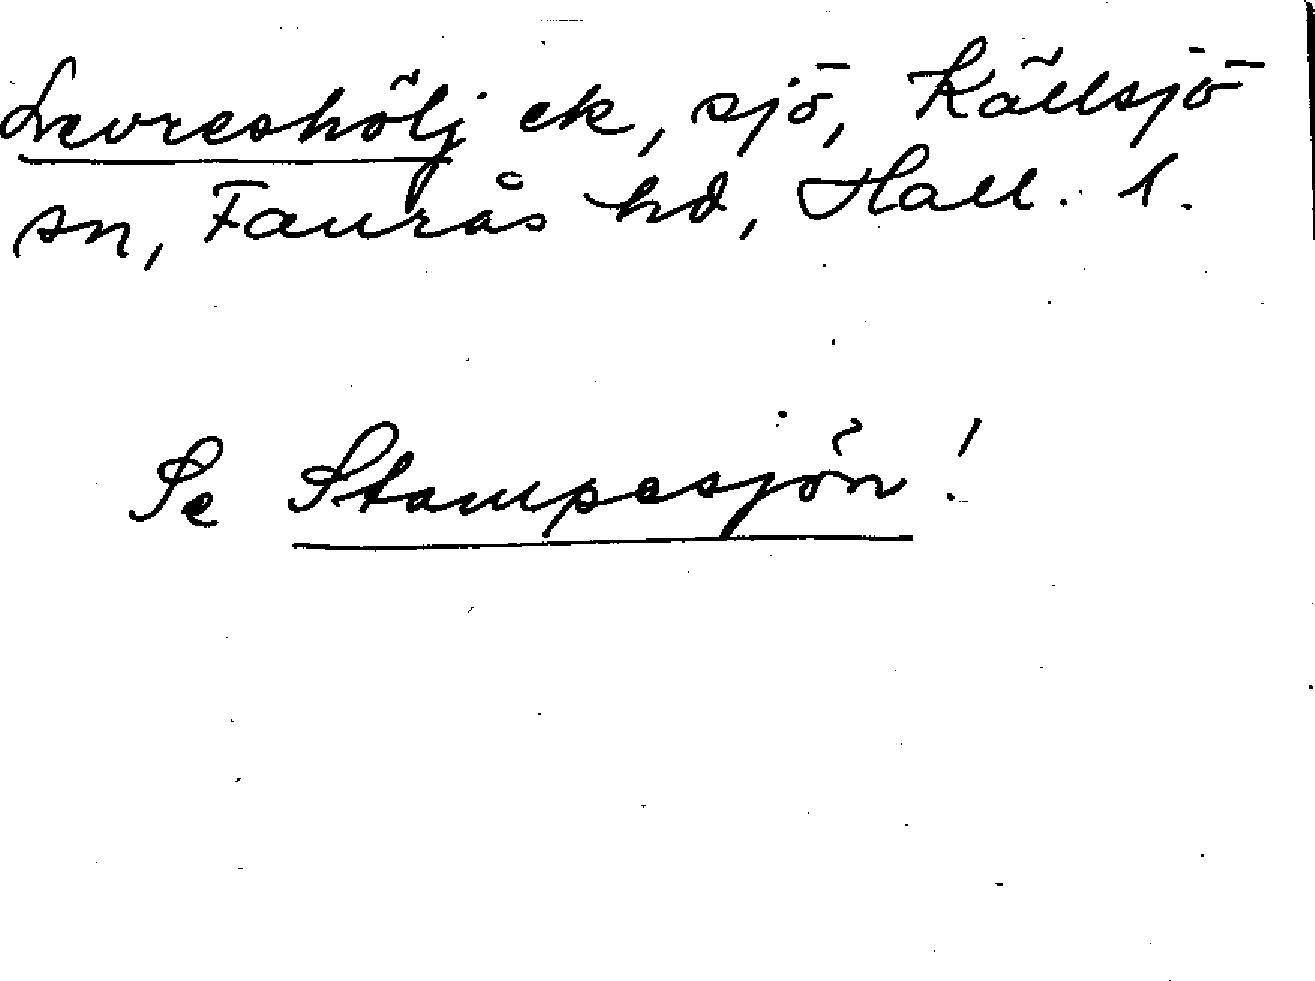 Levreshölj ek, sjö, Källsjö
sn, Faurås hd, Hall. l.
Se Stampesjön!